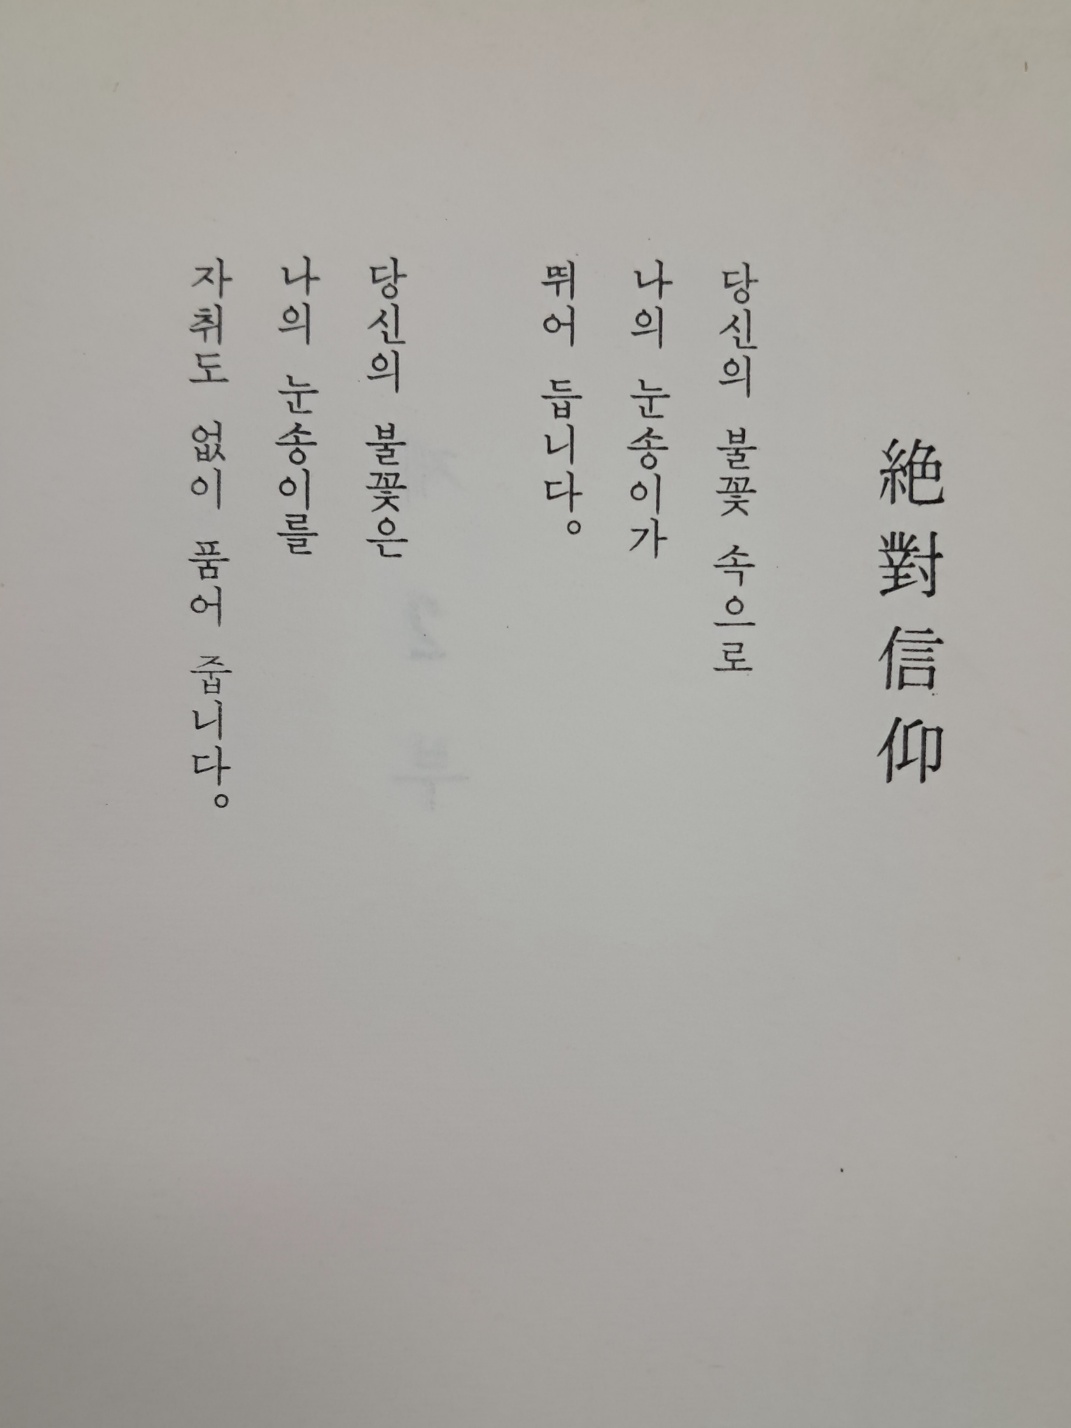 絶對信仰
당신의 불꽃 속으로
나의 눈송이가
뛰어 듭니다。
당신의 불꽃은
나의 눈송이를
자취도 없이 품어 줍니다。